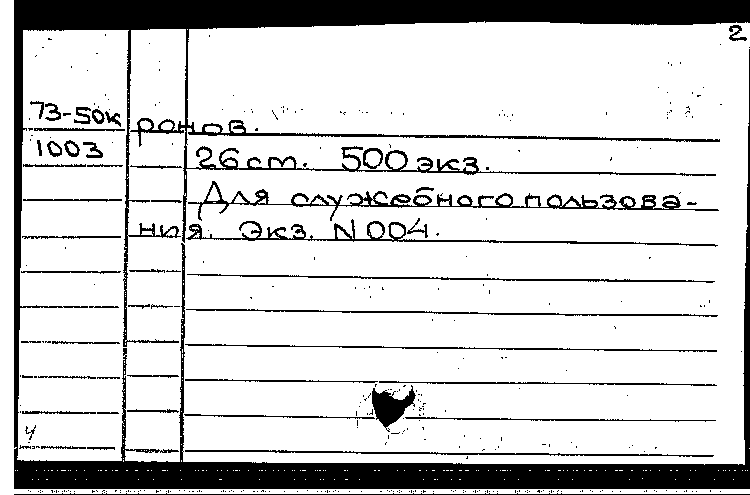 2
73-50к ронов.
1003 26 ст. 500 экз.
Для служебного пользова-
ния. Экз. N 004.
4